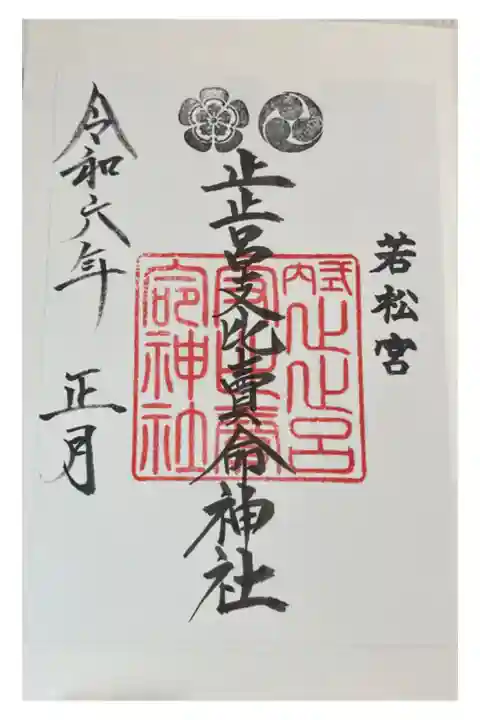 若松宮
止止呂支比賣命神社
令和六年 正月
式内止止呂
命神社